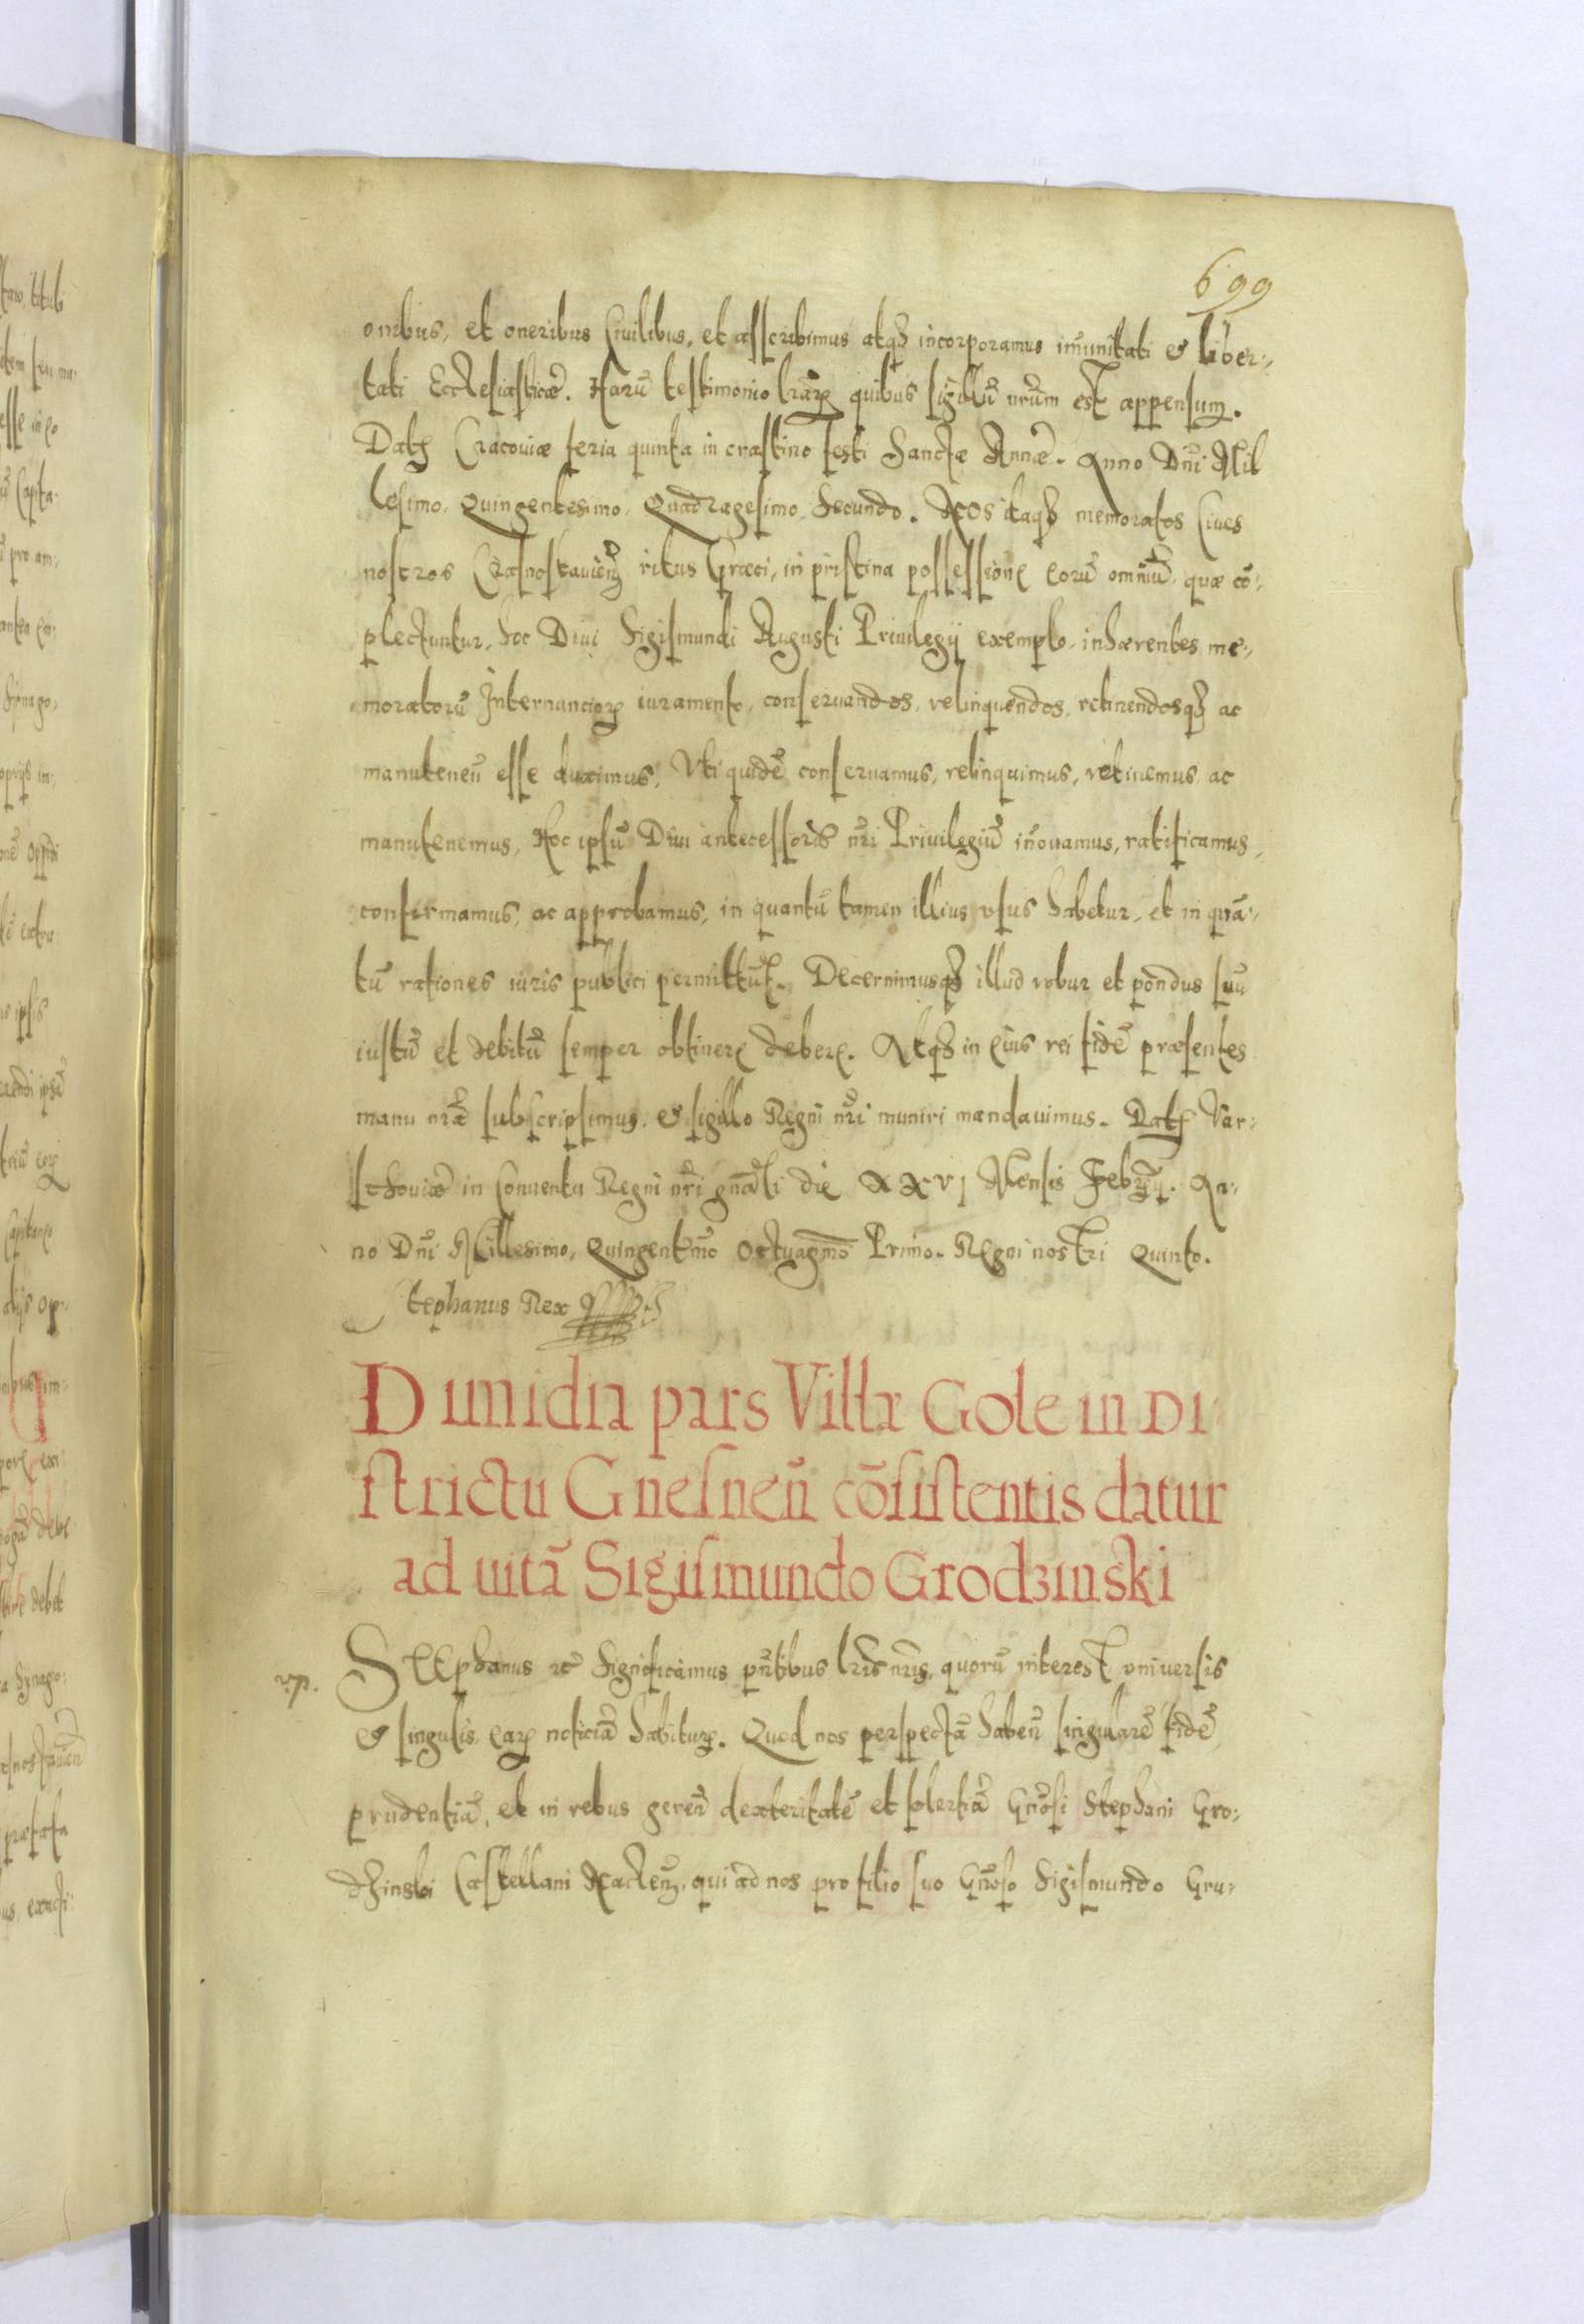 699
onibus, et oneribus Ciuilibus, et asscribimus atqꝫ incorporamus im̃unitati & liber:
tati Ecclesiasticæ. Harũ testimonio lrarꝝ quibus sigillũ nrũm est appensum.
Datꝭ Cracouiæ feria quinta in crastino festi Sanctæ Annæ. Anno Dñi Mil
lesimo, Quingentesimo, Quadragesimo, Secundo. Nos itaqꝫ memoratos Ciues
nostros Crasnostauieñ ritus Græci, in pristina possessione eorũ omniũ, quæ cõ:
plectuntur, hoc Diui Sigismundi Augusti Priuilegij exemplo, inhærentes me:
moratorũ Internunciorꝝ iuramento, conseruandos, relinquendos, retinendosqꝫ ac
manuteneñ esse duximus, Vti quidẽ conseruamus, relinquimus, retinemus ac
manutenemus, Hoc ipsũ Diui antecessoris nr̃i Priuilegiũ iñouamus, ratificamus,
confirmamus, ac approbamus, in quantũ tamen illius vsus habetur, et in quã:
tũ rationes iuris publici permittũt. Decernimusqꝫ illud robur et pondus suũ
iustũ et debitũ semper obtinere debere. Atqꝫ in eius rei fidẽ præsentes
manu nrã subscripsimus, & sigillo Regni nr̃i muniri mandauimus. Datꝭ Var:
schouiæ in Conuentu Regni nr̃i gnãli die XXVI Mensis Febrꝝ. An:
no Dñi Millesimo, Quingentm̃o Octuagm̃o Primo. Regni nostri Quinto.
Stephanus Rex
Dimidia pars Villæ Gole in Di:
strictu Gnesneñ cõsistentis datur
ad uitã Sigismundo Grodzinski
STEphanus etc̃ Significamus pñtibus lris nris, quorũ interest vniuersis
& singulis, earꝝ noticiã habiturꝭ. Quod nos perspectã habeñ singularẽ fidẽ,
prudentiã, et in rebus gereñ dexteritatẽ et solertiã Gñosi Stephani Gro:
dzinski Castellani Nacleñ, qui ad nos pro filio suo Gñoso Sigismundo Gru: